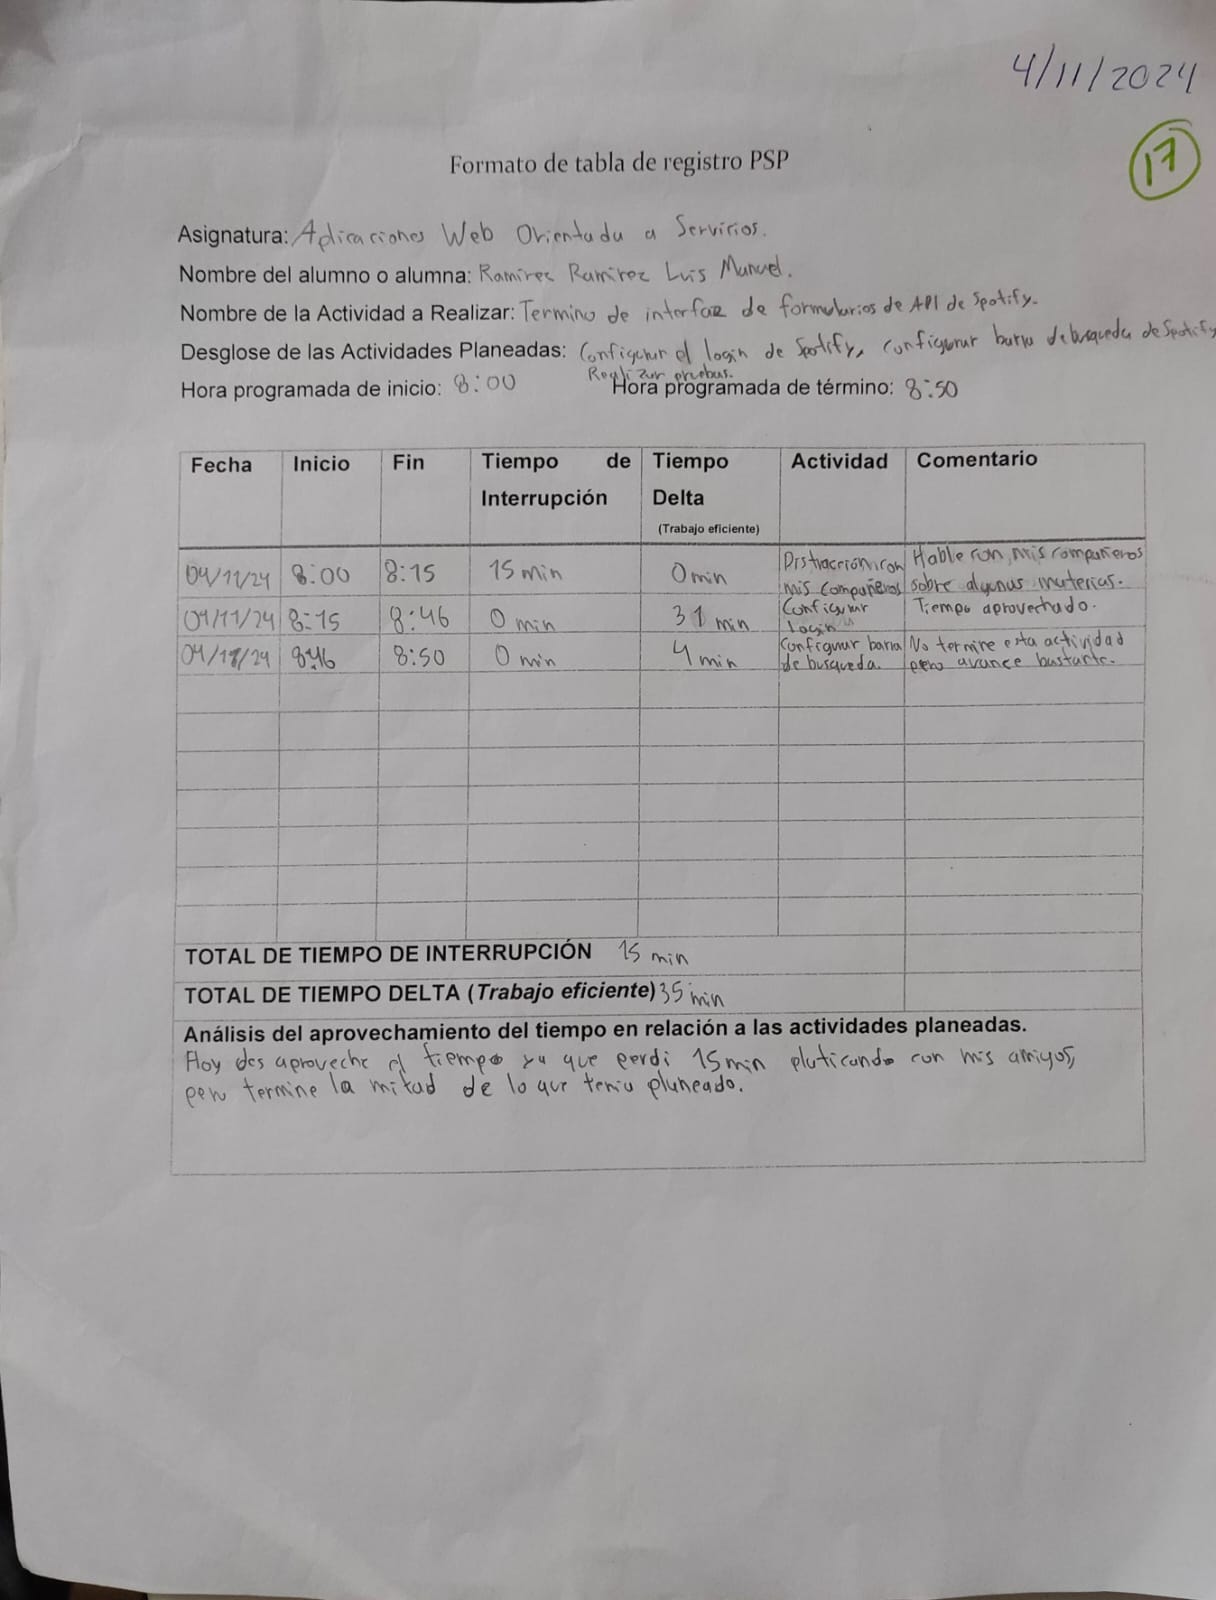 4/11/2024
17
Formato de tabla de registro PSP
Asignatura: Aplicaciones Web Orientada a Servicios.
Nombre del alumno o alumna: Ramirez Ramirez Luis Manuel.
Nombre de la Actividad a Realizar: Termino de interfaz de formularios de API de Spotify.
Desglose de las Actividades Planeadas: Configurar el login de Spotify, configurar barra de busqueda de Spotify
Realizar pruebas.
Hora programada de inicio: 8:00 Hora programada de término: 8:50
Fecha Inicio Fin Tiempo de Interrupción Tiempo Delta (Trabajo eficiente) Actividad Comentario
04/11/24 8:00 8:15 15 min 0 min Distracción con mis compañeros Hable con mis compañeros sobre algunas materias.
04/11/24 8:15 8:46 0 min 31 min Configurar login Tiempo aprovechado.
04/11/24 8:46 8:50 0 min 4 min Configurar barra de busqueda. No termine esta actividad pero avance bastante.
TOTAL DE TIEMPO DE INTERRUPCIÓN 15 min
TOTAL DE TIEMPO DELTA (Trabajo eficiente) 35 min
Análisis del aprovechamiento del tiempo en relación a las actividades planeadas.
Hoy des aproveche el tiempo ya que perdi 15 min platicando con mis amigos,
pero termine la mitad de lo que tenia planeado.